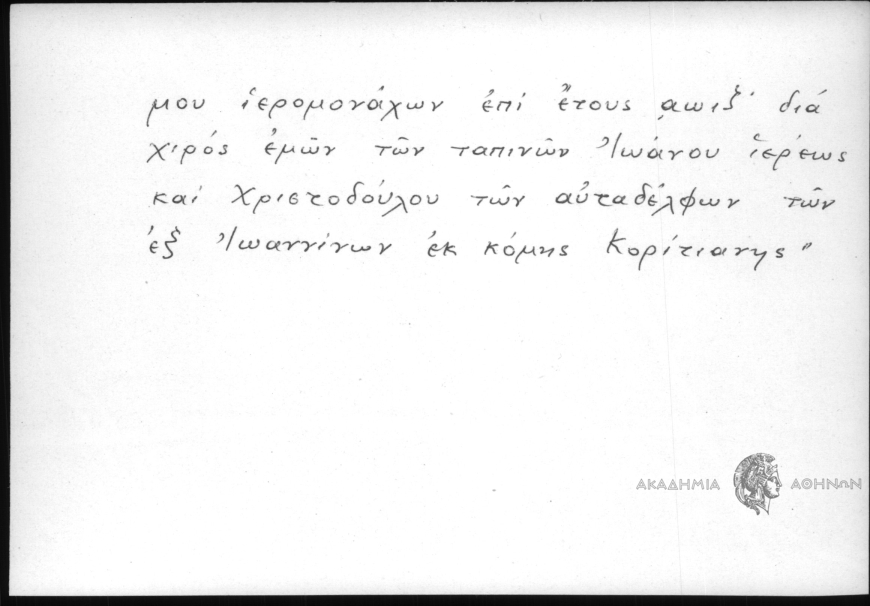 μου ἱερομονάχων ἐπί ἔτους ͵αωιξ´ διά
χιρός ἐμῶν τῶν ταπινῶν Ἰωάνου ἱερέως
καί Χριστοδούλου τῶν αὐταδέλφων τῶν
ἐξ Ἰωαννίνων ἐκ κόμης Κορίτιανης"
ΑΚΑΔΗΜΙΑ ΑΘΗΝΩΝ